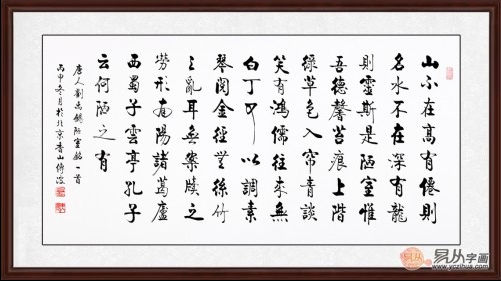 山不在高有僊則
名水不在深有龍
則靈斯是陋室惟
吾德馨苔痕上階
綠草色入帘青談
笑有鴻儒往來無
白丁可以調素
琴閱金經無絲竹
之亂耳無案牘之
勞形南陽諸葛廬
西蜀子雲亭孔子
云何陋之有
唐人劉禹錫陋室銘一首
丙申冬月於北京香山
易从字画
www.yczihua.com